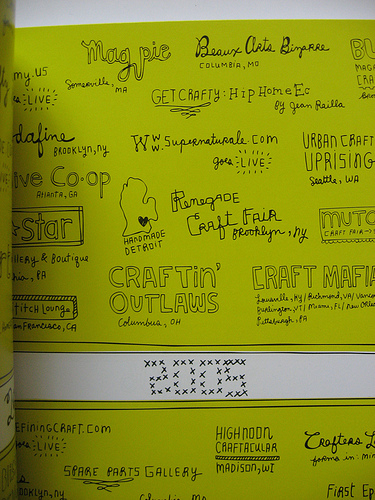 Magpie
Somerville, MA
Beaux Arts Bizarre
COLUMBIA, MO
my.us
LIVE
GETCRAFTY: Hip Home Ec
by Jean Railla
BROOKLYN, NY
Ww.Supernaturale.com
goes LIVE
URBAN CRAFT
UPRISING
Seattle, WA
ive Co-op
ATLANTA, GA
HANDMADE
DETROIT
Renegade
Craft Fair
Brooklyn, Ny
CRAFT FAIR
Star
& Boutique
, PA
CRAFTIN'
OUTLAWS
Columbus, OH
CRAFT MAFIA
Louisville, KY / Richmond, VA /
Burlington, VT / Miami, FL / New
Pittsburgh, PA
titch Lounge
an Francisco, CA
EFININGCRAFT.COM
LIVE
HIGH NOON
CRAFTACULAR
MADISON, WI
Crafters
SPARE PARTS GALLERY
FIRST